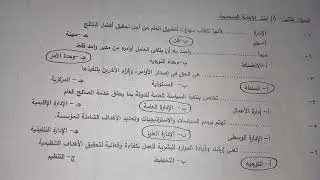 السؤال الثاني: (أ) اختر الإجابة الصحيحة
الإدارة ......... لأنها تتطلب مهارات لتطبيق العلم من أجل تحقيق أفضل النتائج
ب- فن ج- مهنة
......... يقصد به أن يتلقى العامل أوامره من مدير واحد فقط
أ- الانضباط ب- وحدة التوجيه ج- وحدة الأمر
......... هي الحق في إصدار الأوامر، وإلزام الآخرين بتنفيذها
أ- السلطة ب- المسئولية ج- المركزية
......... تختص بتنفيذ السياسة العامة للدولة بما يحقق خدمة الصالح العام
أ- إدارة الأعمال ب- الإدارة العامة ج- الإدارة الإقليمية
......... تهتم برسم السياسات والاستراتيجيات وتحديد الأهداف الشاملة للمؤسسة
أ- الإدارة الوسطى ب- الإدارة العليا ج- الإدارة التنفيذية
......... تعنى إرشاد وقيادة الموارد البشرية للعمل بكفاءة وفعالية لتحقيق الأهداف التنظيمية
أ- التوجيه ب- التخطيط ج- التنظيم